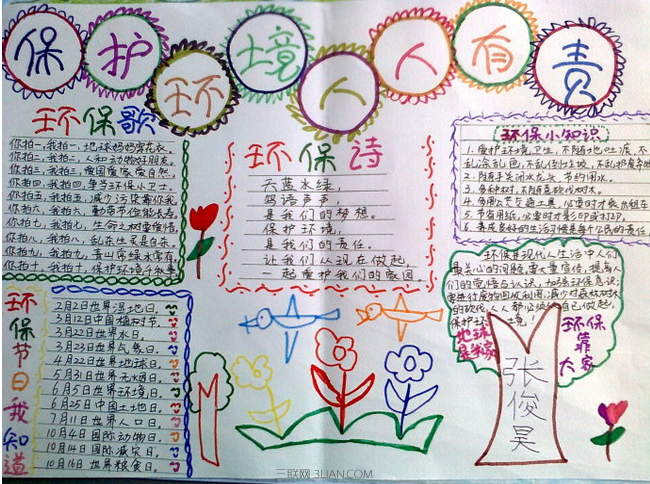 保护环境人人有责
环保歌
你拍一,我拍一,地球妈妈穿花衣。
你拍二,我拍二,人和动物好朋友。
你拍三,我拍三,爱国爱家爱自然。
你拍四,我拍四,争当环保小卫士。
你拍五,我拍五,减少污染靠你我。
你拍六,我拍六,勤俭节俭能长寿。
你拍七,我拍七,生命之树要爱惜。
你拍八,我拍八,乱杀生灵是自杀。
你拍九,我拍九,青山常绿水常有。
你拍十,我拍十,保护环境
环保诗
天蓝水绿,
鸟语声声,
是我们的梦想。
保护环境,
是我们的责任。
让我们从现在做起,
一起爱护我们的家园
环保小知识
1.爱护环境卫生,不随地吐痰,不
乱涂乱画,不乱倒垃圾,不乱扔废弃物
2.随手关闭水龙头,节约用水。
3.多种树,不随意砍伐树木。
4.多用公共交通工具,必要时才乘出租车
5.节省用纸,必要时才影印或打印。
6.养成良好的生活习惯是每个公民的责任。
环保是现代人生活中人们
最关心的问题,要大量宣传,提高人
们的觉悟与认识,加强环保意识;
要进行废物回收利用,减少对森林树木
的砍伐,人人都必须从自己做起,
保护环境!
地球是我家
环保靠大家
张俊昊
环保节日我知道
2月2日世界湿地日。
3月12日中国植树节。
3月22日世界水日。
3月23日世界气象日。
4月22日世界地球日。
5月31日世界无烟日。
6月5日世界环境日。
6月25日中国土地日。
7月11日世界人口日。
10月4日国际动物日。
10月14日国际减灾日。
10月16日世界粮食日。
三联网 3LIAN.COM